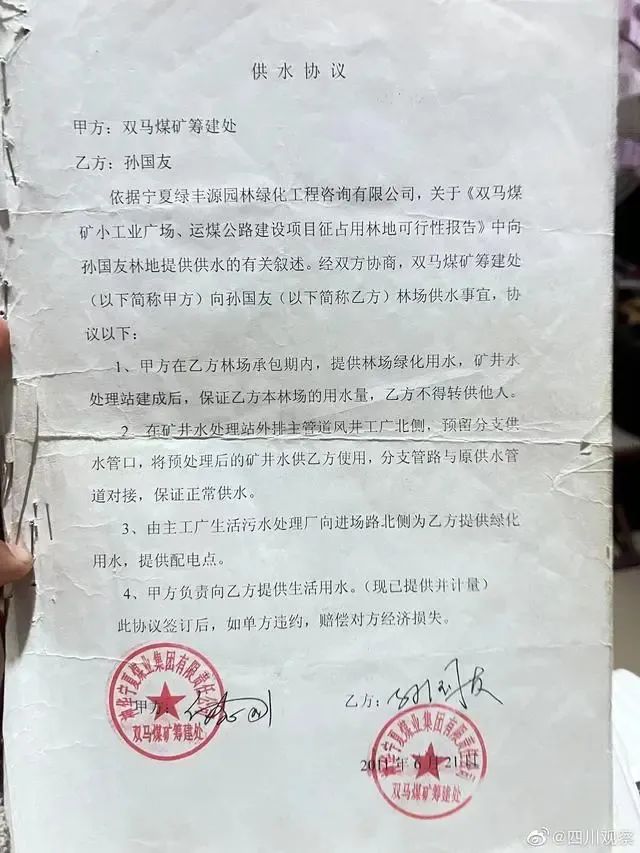 供水协议
甲方：双马煤矿筹建处
乙方：孙国友
依据宁夏绿丰源园林绿化工程咨询有限公司，关于《双马煤
矿小工业广场、运煤公路建设项目征占用林地可行性报告》中向
孙国友林地提供供水的有关叙述。经双方协商，双马煤矿筹建处
（以下简称甲方）向孙国友（以下简称乙方）林场供水事宜，协
议以下：
1、甲方在乙方林场承包期内，提供林场绿化用水，矿井水
处理站建成后，保证乙方本林场的用水量，乙方不得转供他人。
2、在矿井水处理站外排主管道风井工广北侧，预留分支供
水管口，将预处理后的矿井水供乙方使用，分支管路与原供水管
道对接，保证正常供水。
3、由主工广生活污水处理厂向进场路北侧为乙方提供绿化
用水，提供配电点。
4、甲方负责向乙方提供生活用水。（现已提供并计量）
此协议签订后，如单方违约，赔偿对方经济损失。
神华宁夏煤业集团有限责任公司
双马煤矿筹建处
甲方：
乙方：孙国友
神华宁夏煤业集团有限责任公司
双马煤矿筹建处
2011年6月21日
@四川观察